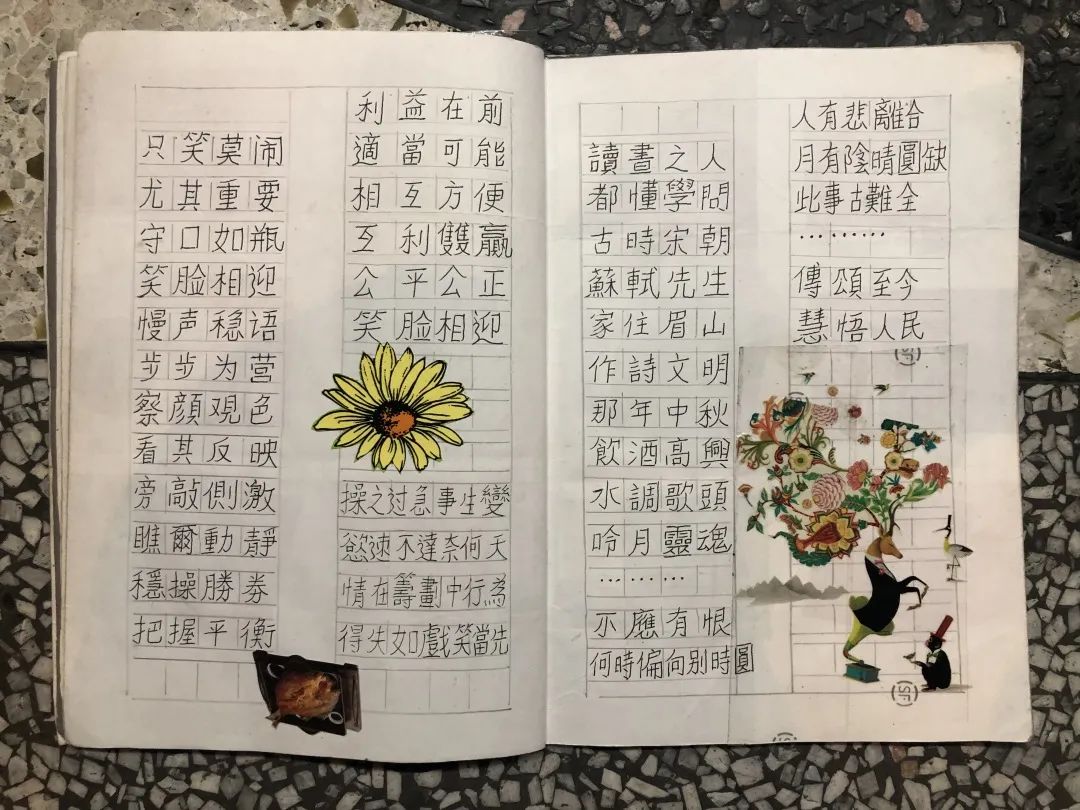 只笑莫闹
尤其重要
守口如瓶
笑脸相迎
慢声稳语
步步为营
察顔观色
看其反映
旁敲側激
瞧爾動靜
穩操勝券
把握平衡
利益在前
適當可能
相互方便
互利雙贏
公平公正
笑脸相迎
操之过急事生變
慾速不達奈何天
情在籌劃中行為
得失如戲笑當先
讀晝之人
都懂學問
古時宋朝
蘇軾先生
家住眉山
作詩文明
那年中秋
飲酒高興
水調歌頭
吟月靈魂
………
不應有恨
何時偏向别時圓
人有悲離合
月有陰晴圓缺
此事古難全
………
傳頌至今
慧悟人民